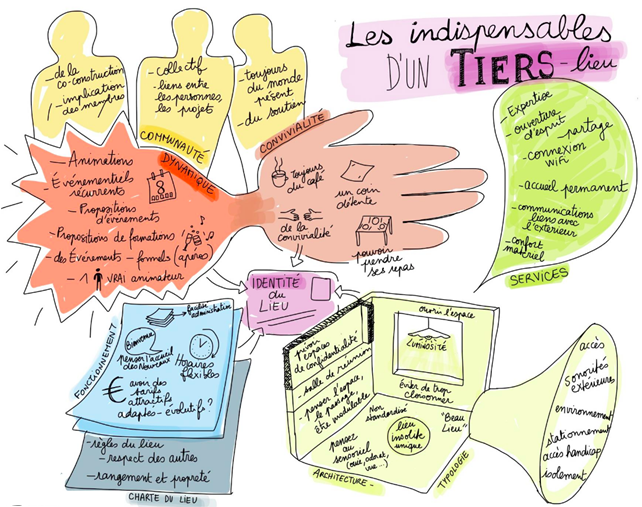 Les indispensables
D'UN TIERS-lieu
- de la
co-construction
- implication
des membres
- collectif
- liens entre
les personnes,
les projets
- toujours
du monde
présent
- du soutien
COMMUNAUTÉ
DYNAMIQUE
- Animations
- Événementiels
récurrent
- Propositions
d'événements
- Propositions de formations
- des Événements - formels (après)
- 1 VRAI animateur
CONVIVIALITÉ
Toujours
du café
un coin
détente
de la
convivialité
pouvoir
prendre
ses repas
- Expertise
- ouverture
d'esprit
- partage
- connexion
WiFi
- accueil permanent
- communications
liens avec
l'extérieur
- confort
matériel
SERVICES
IDENTITÉ
du
LIEU
FONCTIONNEMENT
faciliter
administration
Bienvenue
penser l'accueil
des Nouveaux
Horaires
flexibles
€ avoir des
tarifs
attractifs
adaptés - évolutifs?
- règles du lieu
- respect des autres
- rangement et propreté
CHARTE DU LIEU
prévoir
espaces
de confidentialité
- salle de réunion
- penser l'espace,
le passage,
être modulable
ouvrir l'espace
LUMINOSITÉ
éviter de trop
cloisonner
Non
standardisé
"Beau
Lieu"
lieu
insolite
unique
penser
au
sensoriel
vue ...)
ARCHITECTURE -
TYPOLOGIE
accès
sonorités
extérieures
environnement
stationnement
accès handicap
isolement